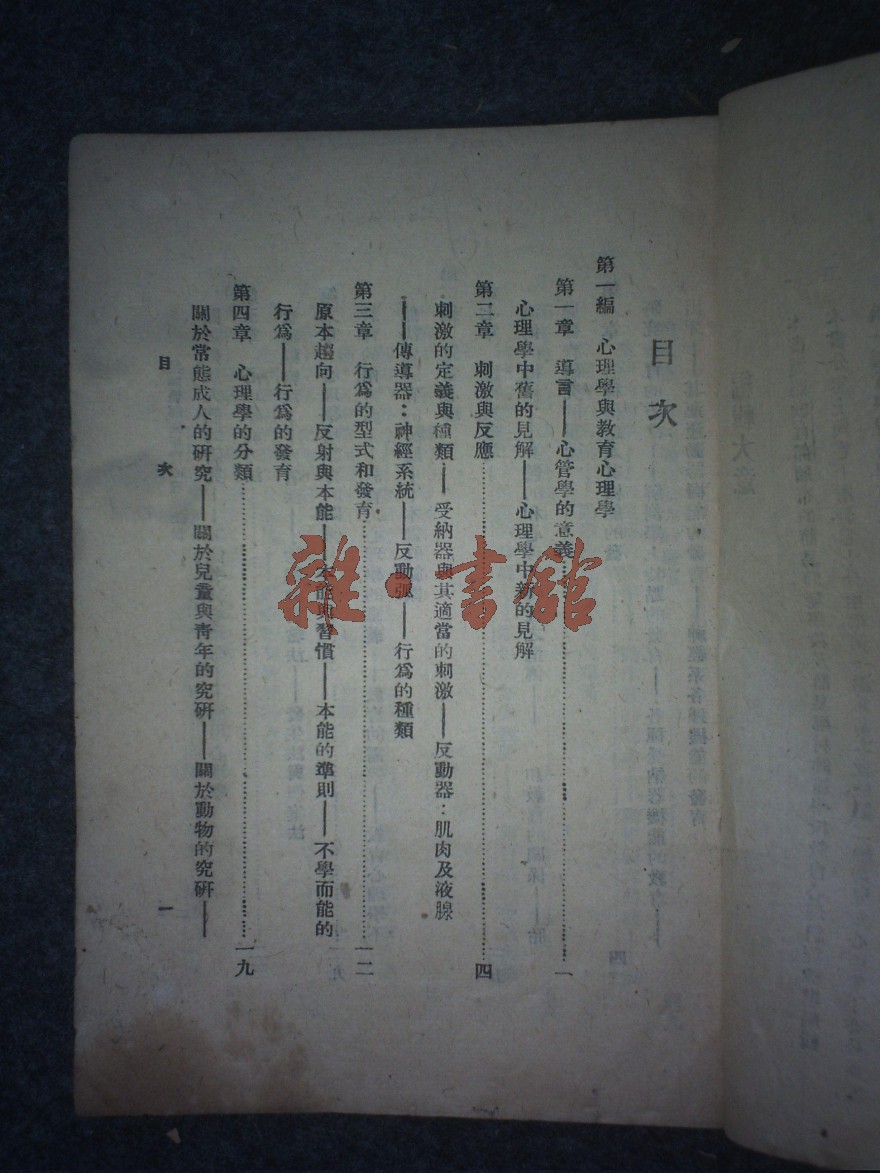 目次
第一編　心理學與教育心理學
第一章　導言——心管學的意義……一
心理學中舊的見解——心理學中新的見解
第二章　刺激與反應……四
刺激的定義與種類——受納器與其適當的刺激——反動器：肌肉及液腺
——傳導器：神經系統——反動弧——行爲的種類
第三章　行爲的型式和發育……一二
原本趨向——反射與本能——本能與習慣——本能的準則——不學而能的
行爲——行爲的發育
第四章　心理學的分類……一九
關於常態成人的研究——關於兒童與靑年的究研——關於動物的究研——
目次　一
雜·書館